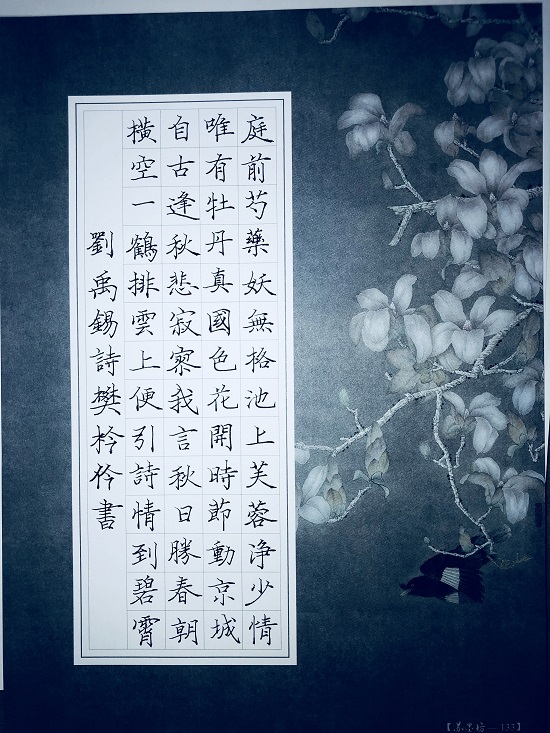 庭前芍藥妖無格池上芙蓉浄少情
唯有牡丹真國色花開時節動京城
自古逢秋悲寂寥我言秋日勝春朝
橫空一鶴排雲上便引詩情到碧霄
劉禹錫詩樊柃伶書